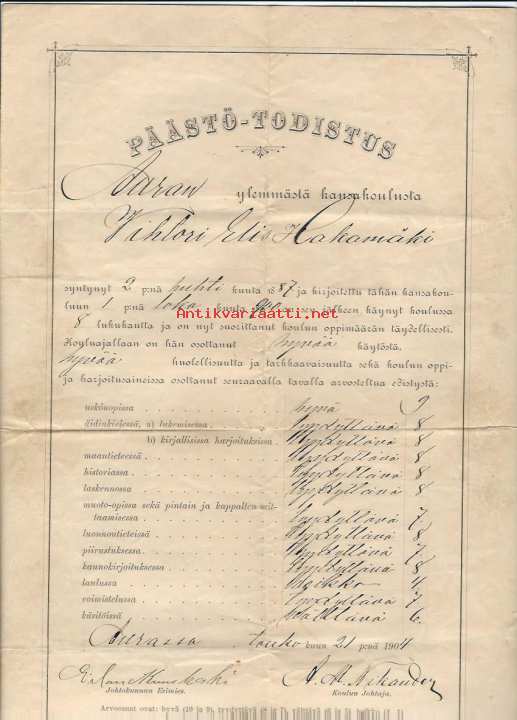 PÄÄSTÖ-TODISTUS
Auran ylemmästä kansakoulusta
Vihtori Elis Hakamäki
syntynyt 2 p:nä huhti kuuta 1887 ja kirjoitettu tähän kansakou-
luun 1 p:nä loka kuuta sen jälkeen käynyt koulussa
Antikvariaatti.net
8 lukukautta ja on nyt suorittanut koulun oppimäärän täydellisesti.
Kouluajallaan on hän osottanut hyvää käytöstä,
hyvää huolellisuutta ja tarkkaavaisuutta sekä koulun oppi-
ja harjoitusaineissa osottanut seuraavalla tavalla arvosteltua edistystä:
uskonopissa hyvä 9
äidinkielessä, a) lukemisessa tyydyttävä 8
b) kirjallisissa harjoituksissa tyydyttävä 8
maantieteessä tyydyttävä 8
historiassa tyydyttävä 8
laskennossa tyydyttävä 8
muoto-opissa sekä pintain ja kappalten mit-
taamisessa tyydyttävä 7
luonnontieteissä tyydyttävä 8
piirustuksessa tyydyttävä 7
kaunokirjoituksessa tyydyttävä 8
laulussa heikko 4
voimistelussa tyydyttävä 7
käsitöissä välttävä 6.
Aurassa touko kuun 21 p:nä 1904
Johtokunnan Esimies. Koulun Johtaja.
Arvosanat ovat: hyvä (10 ja 9), tyydyttävä